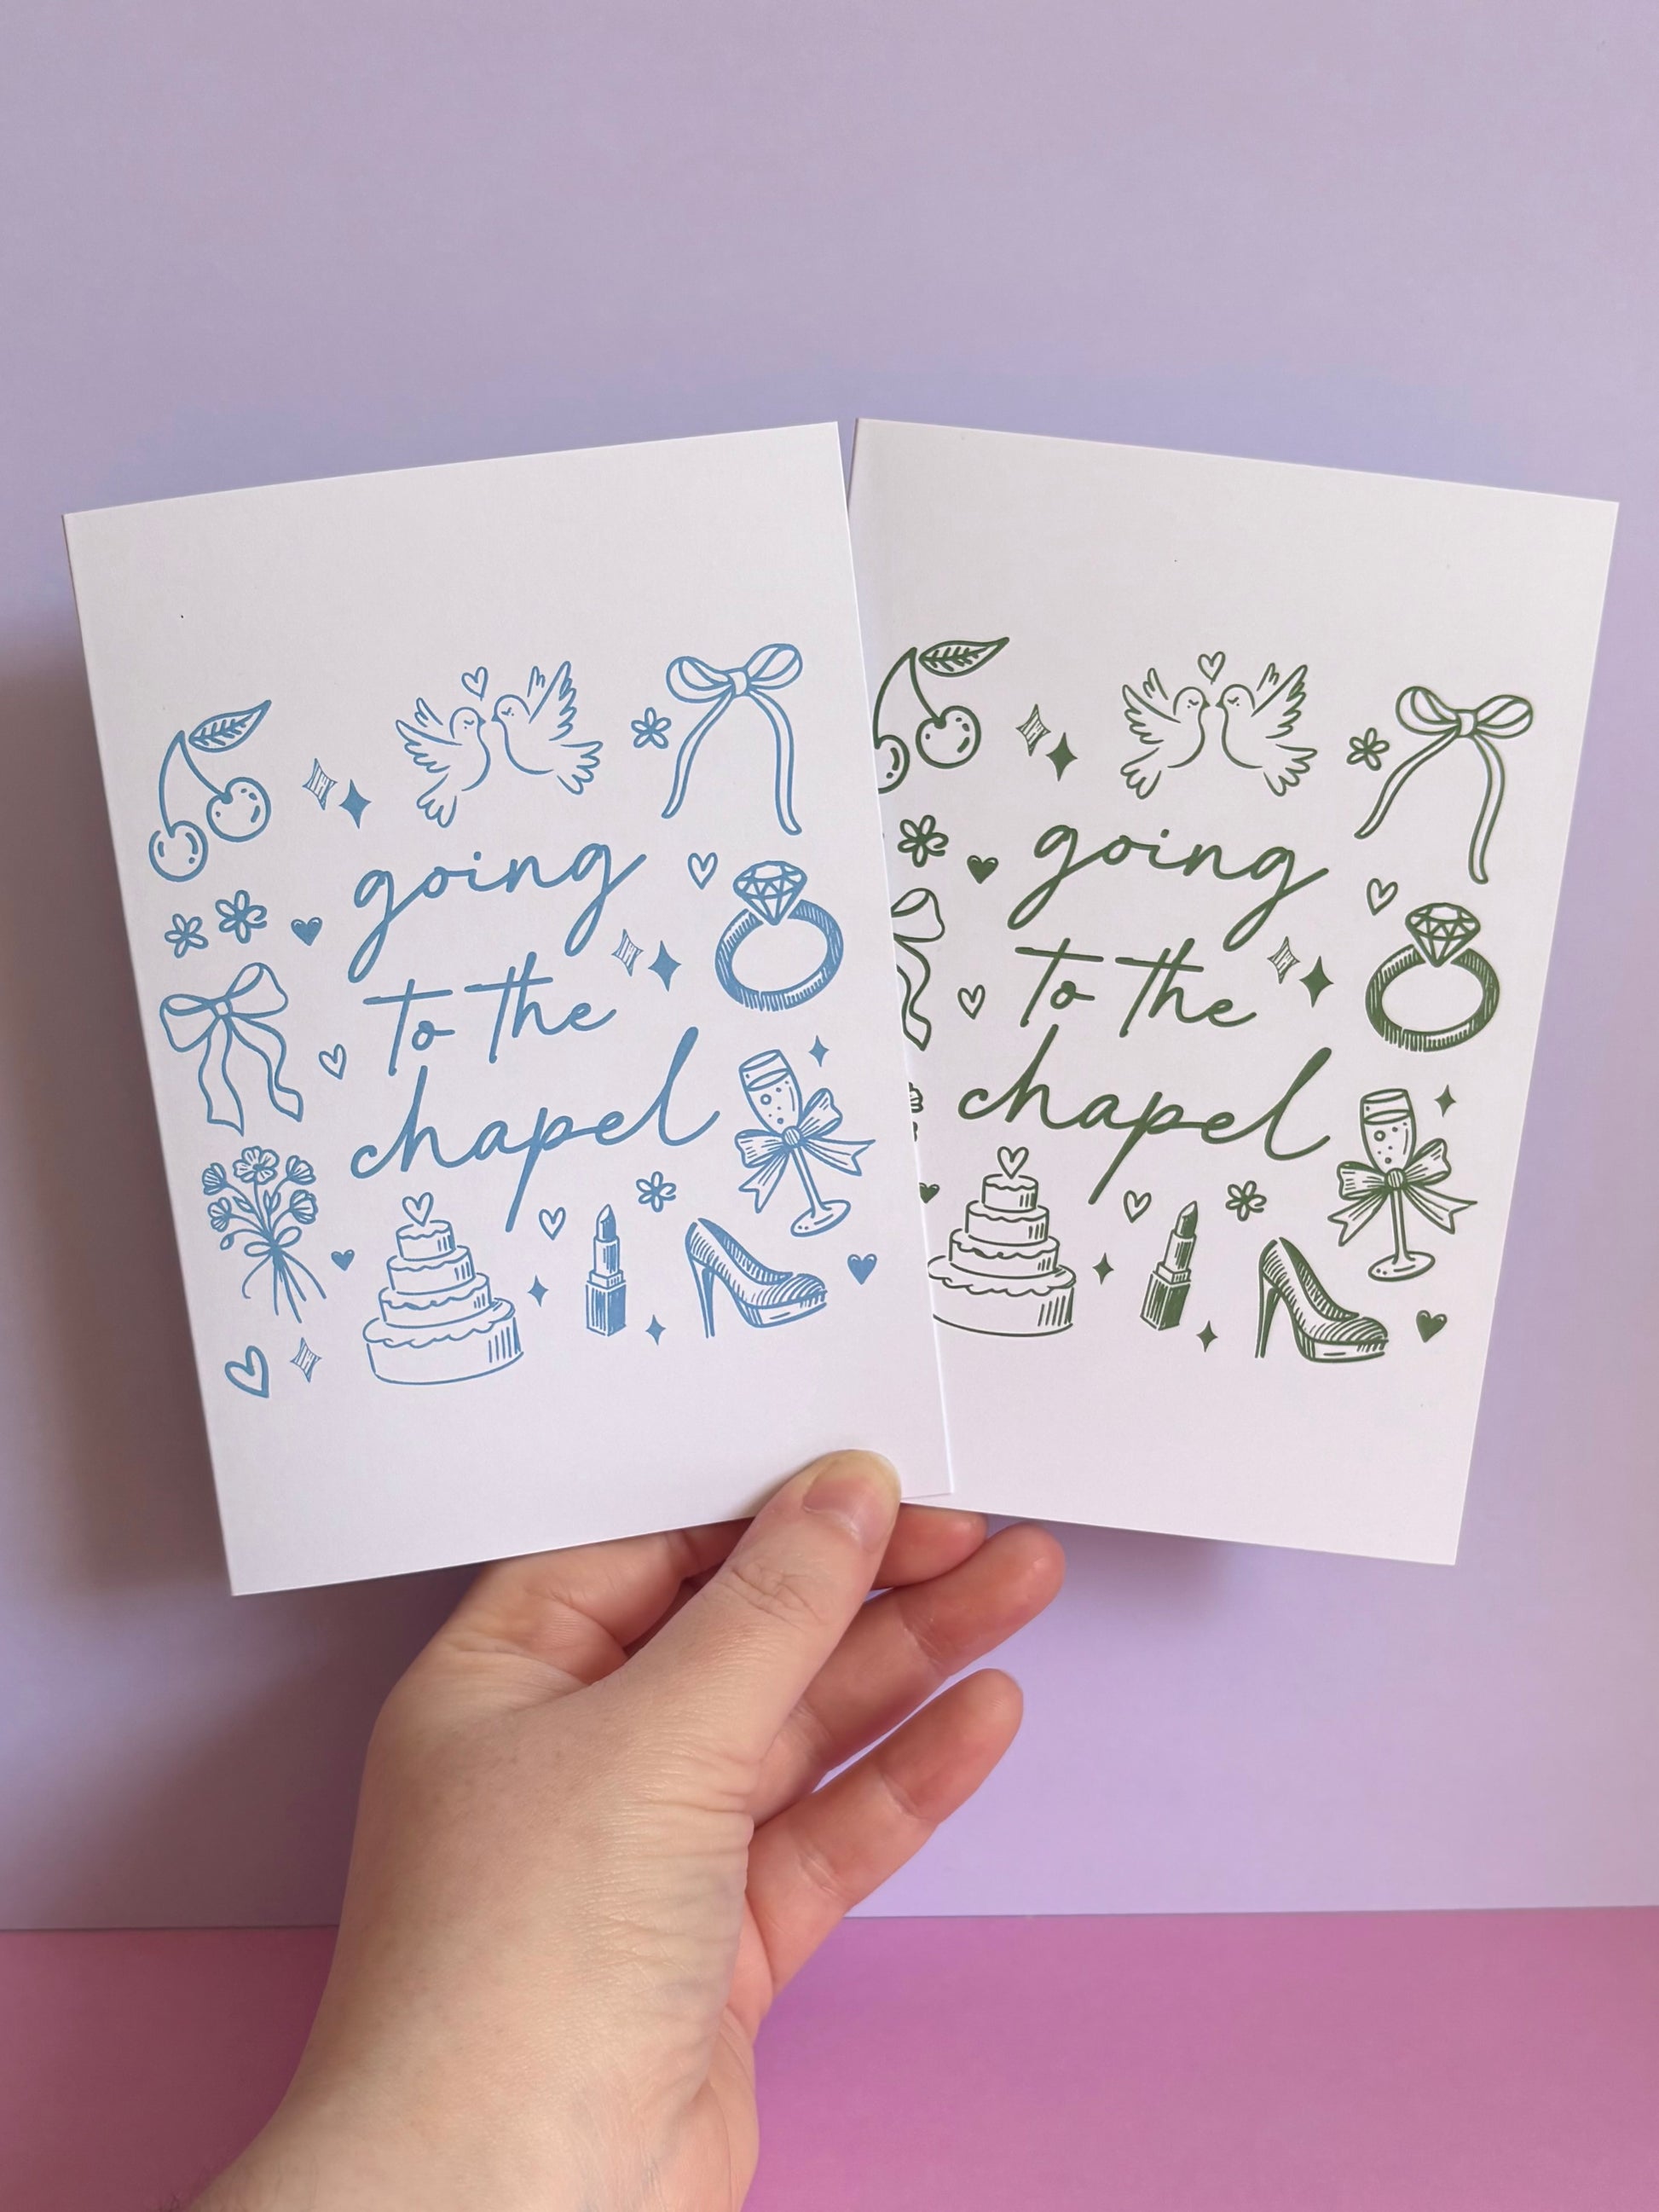 going
to the
chapel
going
to the
chapel